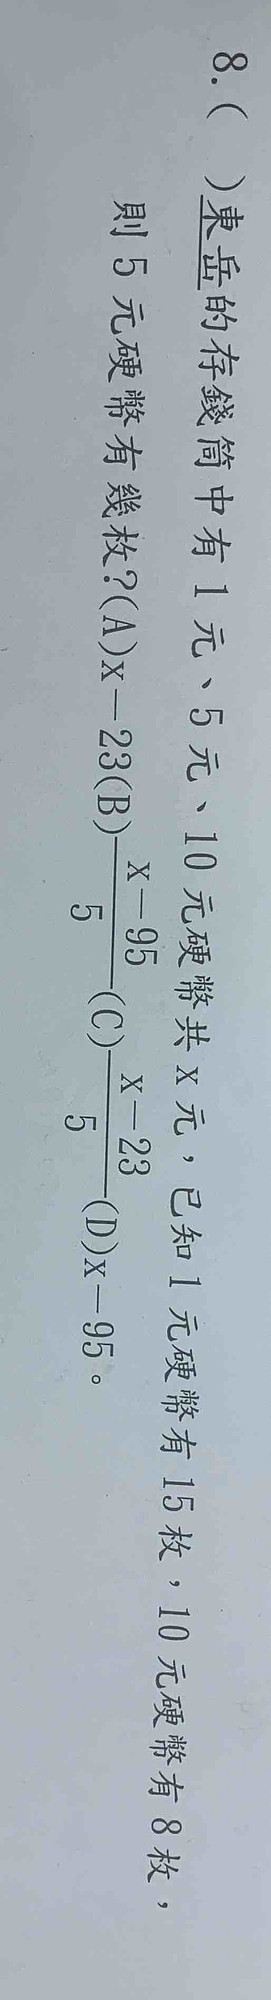 8.(　)東岳的存錢筒中有1元、5元、10元硬幣共x元，已知1元硬幣有15枚，10元硬幣有8枚，
則5元硬幣有幾枚?(A)x－23(B)$\frac{x-95}{5}$(C)$\frac{x-23}{5}$(D)x－95。